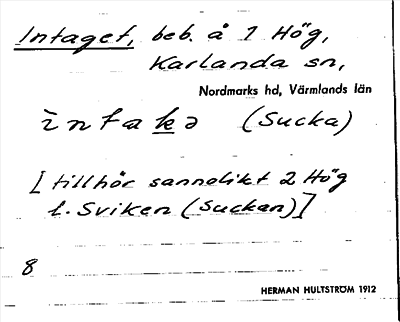 Intaget, beb. å 1 Hög,
Karlanda sn,
Nordmarks hd, Värmlands län
ìntakə (Sucka)
[tillhör sannolikt 2 Hög
l. Sviken (Suckan)]
8
HERMAN HULTSTRÖM 1912